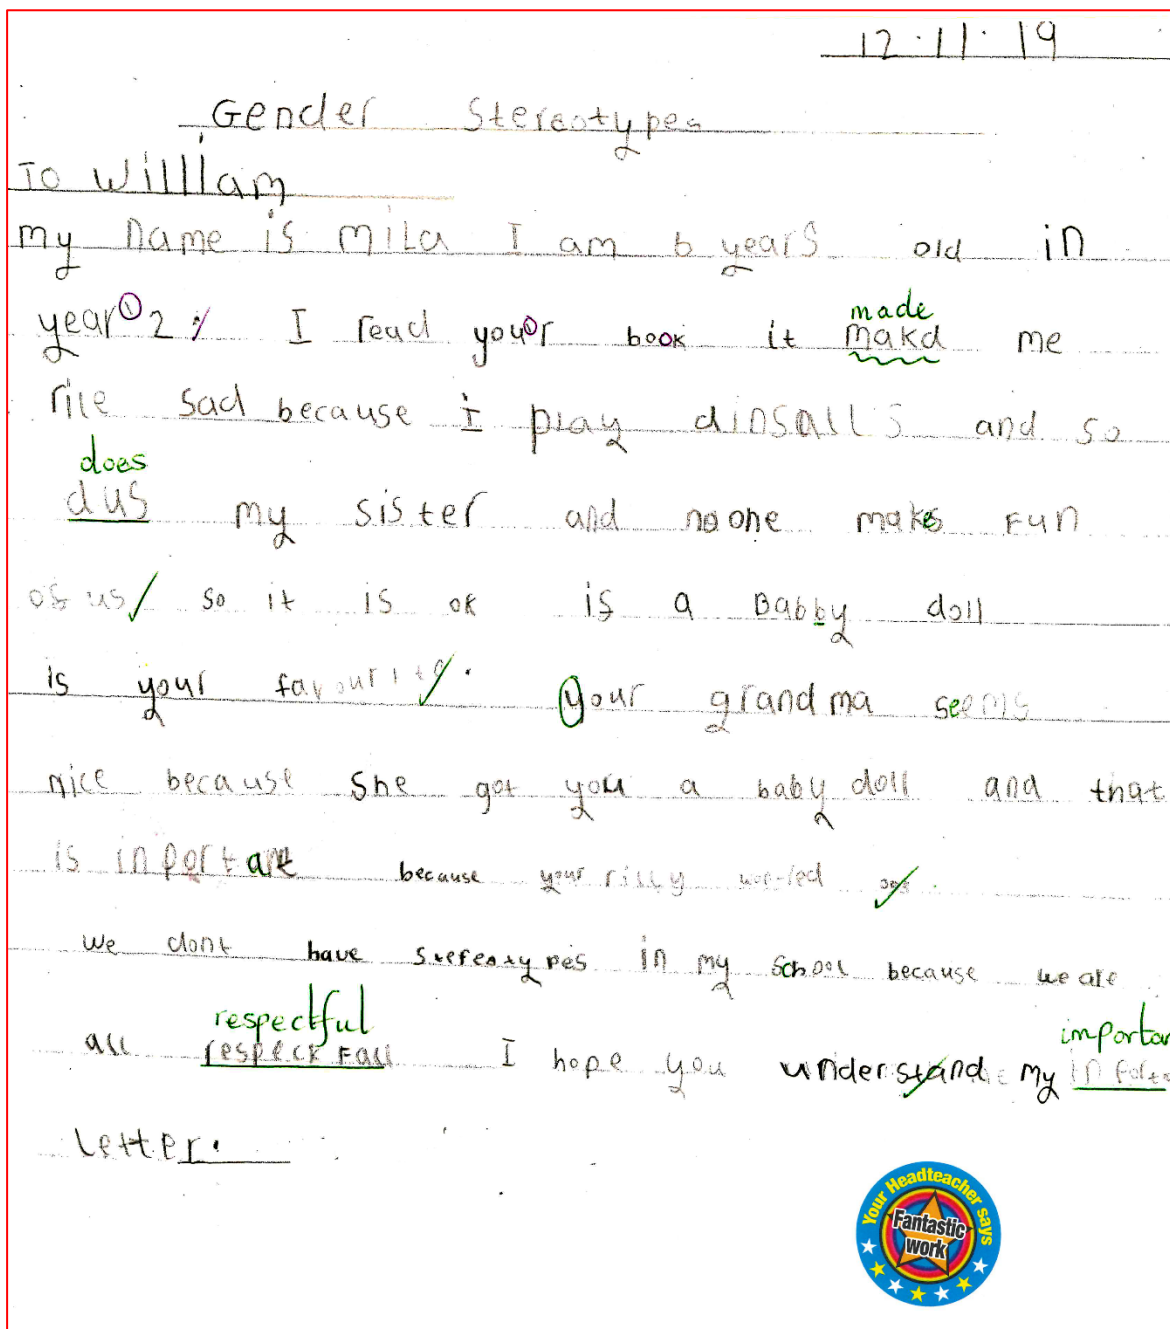 12.11.19
Gender Stereotypes
To William
my name is mila I am 6 years old in
year 2 I read your book it makd me
made
rile sad because i play dinsalls and so
does
dus my sister and no one makes Fun
of us so it is ok is a Babby doll
is your favourite. your grandma seems
nice because She got you a baby doll and that
is inportant because your rilly
we dont have stereotypes in my school because we are
respectful
all respeck Fall I hope you understand my
letter.
Your Headteacher says
Fantastic work